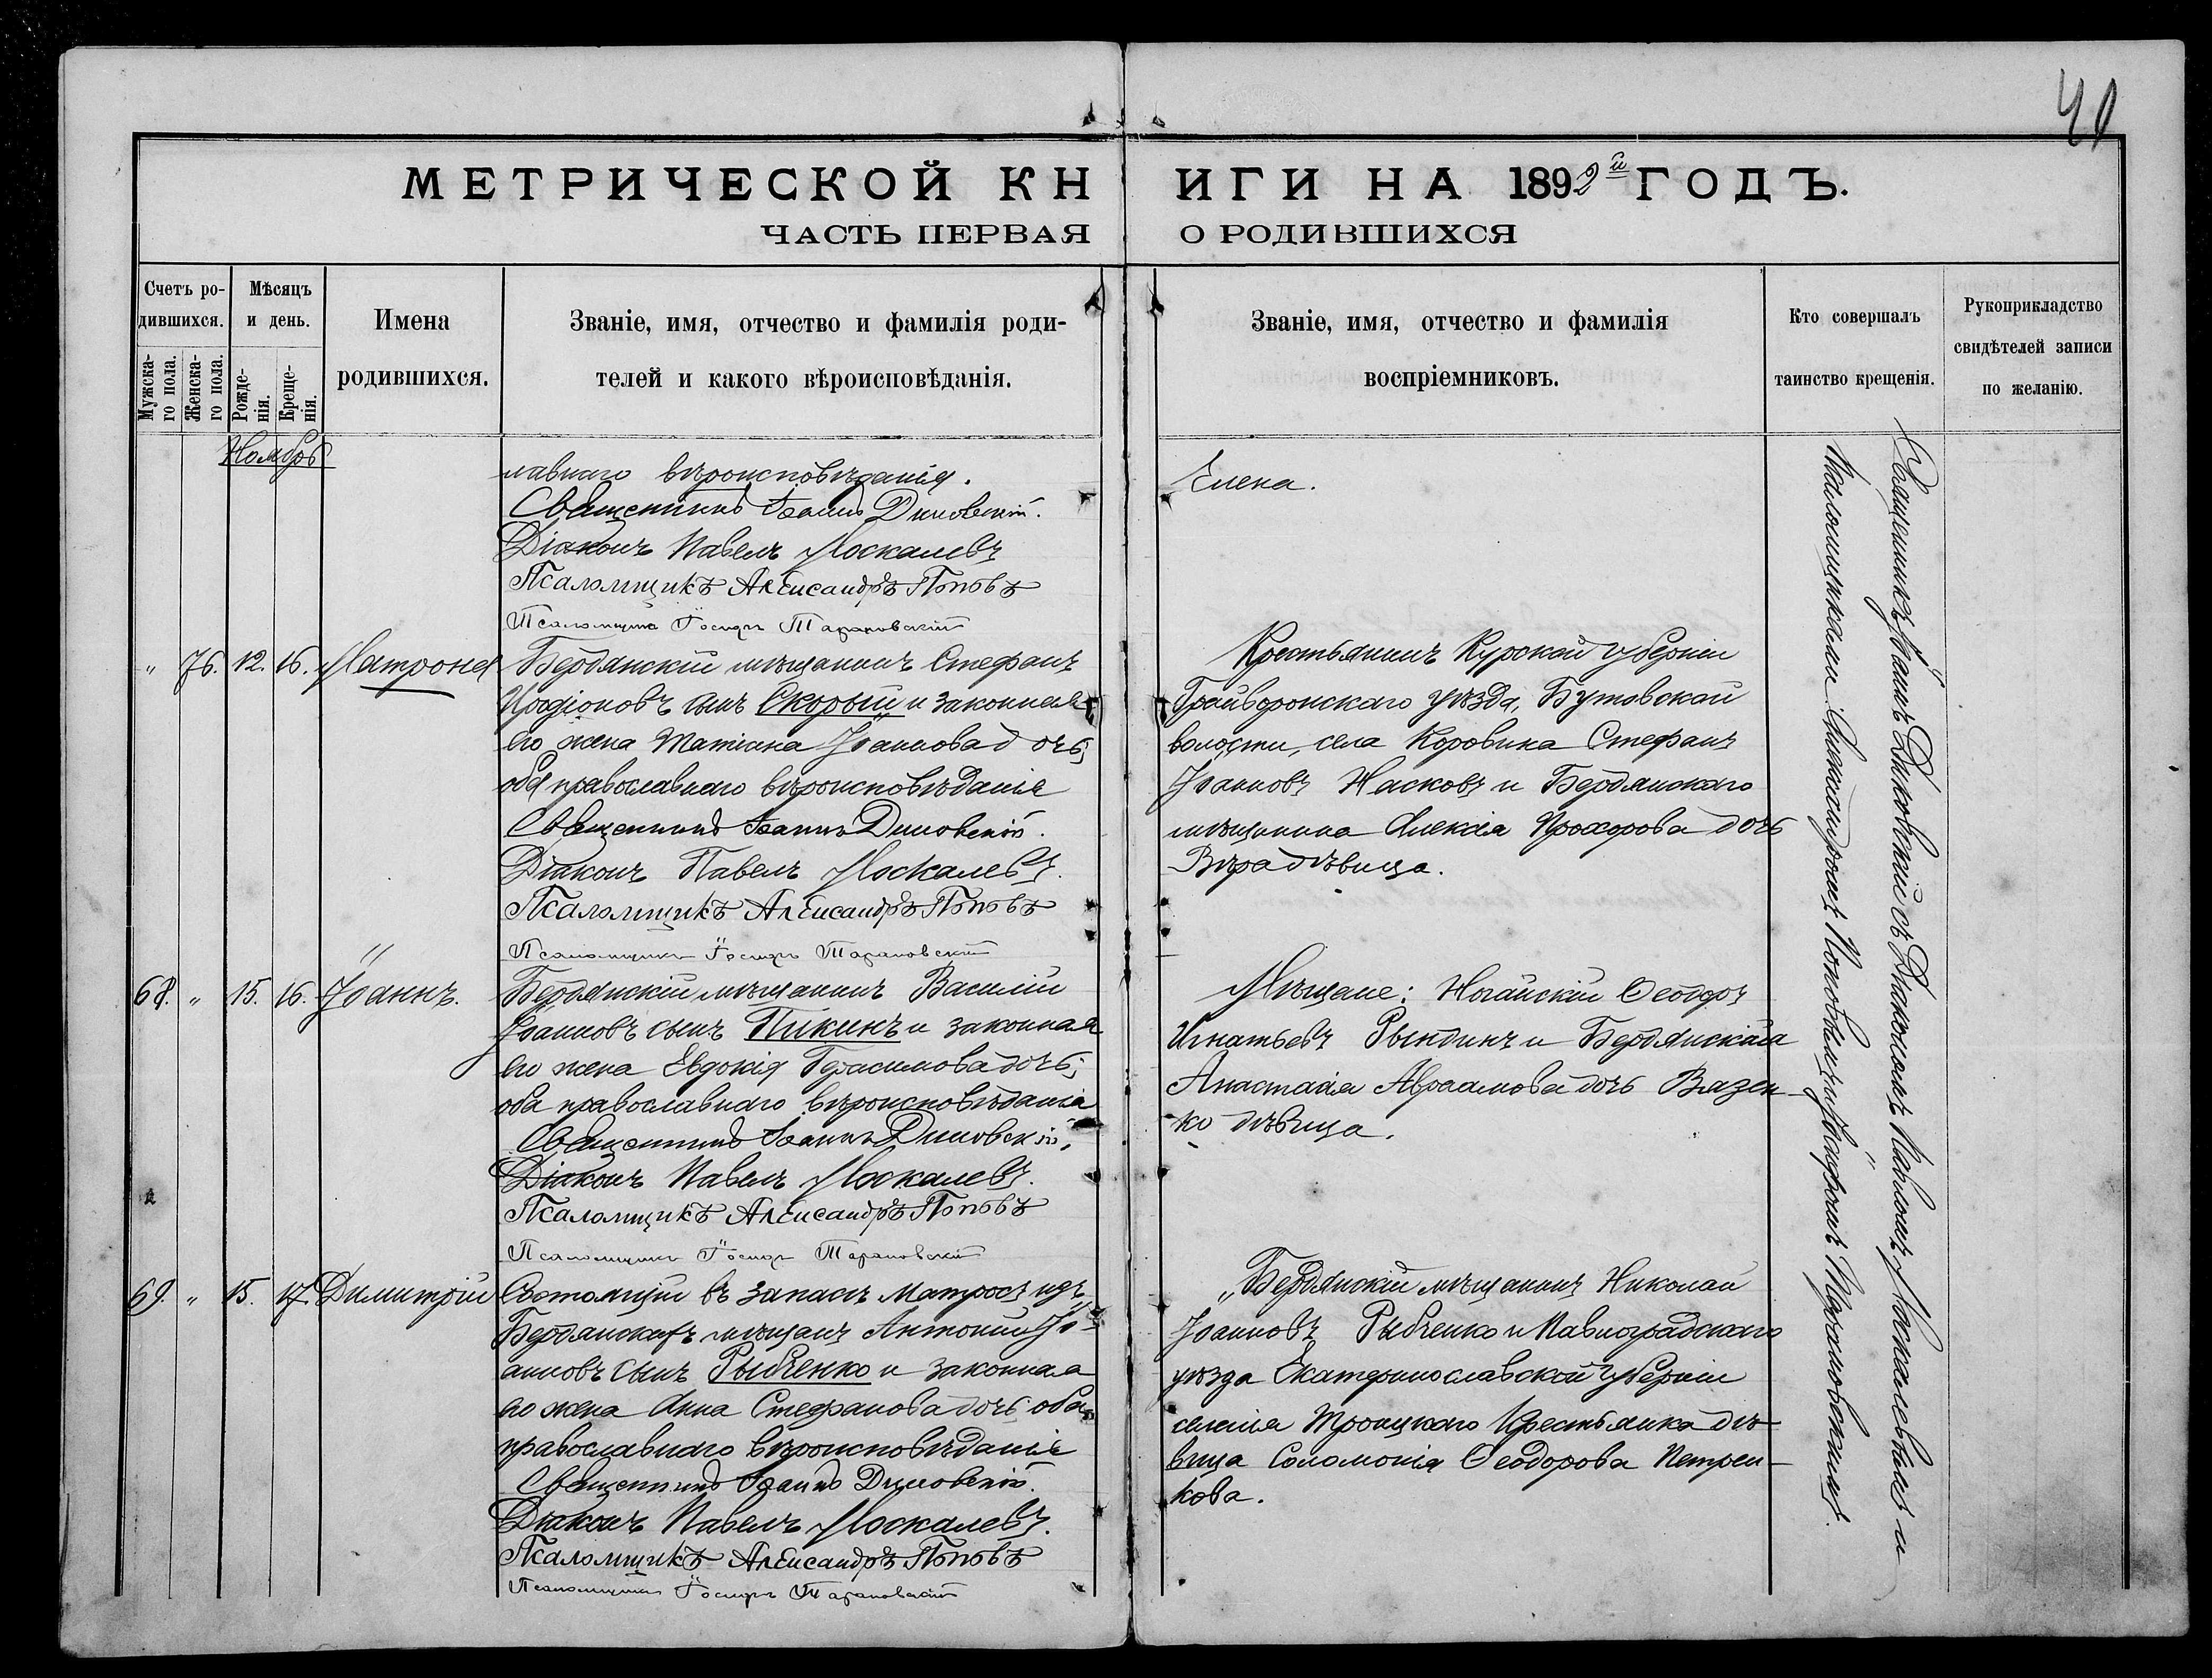 41
МЕТРИЧЕСКОЙ КНИГИ НА 1892й ГОДЪ.
ЧАСТЬ ПЕРВАЯ О РОДИВШИХСЯ
Счетъ ро-
дившихся.
Мужска-
го пола.
Женска-
го пола.
Мѣсяцъ
и день.
Рожде-
нія.
Креще-
нія.
Имена
родившихся.
Званіе, имя, отчество и фамилія роди-
телей и какого вѣроисповѣданія.
Званіе, имя, отчество и фамилія
воспріемниковъ.
Кто совершалъ
таинство крещенія.
Рукоприкладство
свидѣтелей записи
по желанію.
Ноябрь
лавнаго вѣроисповѣданія.
Священникъ Іоаннъ Димовскій.
Діаконъ Павелъ Москалевъ
Псаломщикъ Александръ Поповъ
Псаломщикъ Іосифъ Тарановскій
Елена.
" 76. 12. 16. Матрона
Бердянскій мѣщанинъ Стефанъ
Иродіоновъ сынъ Скорый и законная
его жена Татіана Іоаннова дочь;
оба православнаго вѣроисповѣданія
Священникъ Іоаннъ Димовскій.
Діаконъ Павелъ Москалевъ.
Псаломщикъ Александръ Поповъ
Псаломщикъ Іосифъ Тарановскій
Крестьянинъ Курской губерніи
Грайворонскаго уѣзда, Бутовской
волости, села Коровина Стефанъ
Іоанновъ Насковъ и Бердянскаго
мѣщанина Алексія Прохорова дочь
Вѣра дѣвица.
68. " 15. 16. Іоаннъ.
Бердянскій мѣщанинъ Василій
Іоанновъ сынъ Пикинъ и законная
его жена Евдокія Герасимова дочь;
оба православнаго вѣроисповѣданія
Священникъ Іоаннъ Димовскій.
Діаконъ Павелъ Москалевъ.
Псаломщикъ Александръ Поповъ
Псаломщикъ Іосифъ Тарановскій
Мѣщане: Ногайскій Ѳеодоръ
Игнатьевъ Рындинъ и Бердянская
Анастасія Авраамова дочь Вязен-
ко дѣвица.
69. " 15. 17. Димитрій
Состоящій въ запасѣ матросъ изъ
Бердянскихъ мѣщанъ Антоній Іо-
анновъ сынъ Рыбченко и законная
его жена Анна Стефанова дочь оба
православнаго вѣроисповѣданія
Священникъ Іоаннъ Димовскій.
Діаконъ Павелъ Москалевъ.
Псаломщикъ Александръ Поповъ
Псаломщикъ Іосифъ Тарановскій
Бердянскій мѣщанинъ Николай
Іоанновъ Рыбченко и Павлоградскаго
уѣзда Екатеринославской губерніи
селенія Троицкаго крестьянка дѣ-
вица Соломонія Ѳеодорова Петрен-
кова.
Священникъ Іоаннъ Димовскій съ Діакономъ Павломъ Москалевымъ и
Псаломщиками Александромъ Поповымъ и Іосифомъ Тарановскимъ.